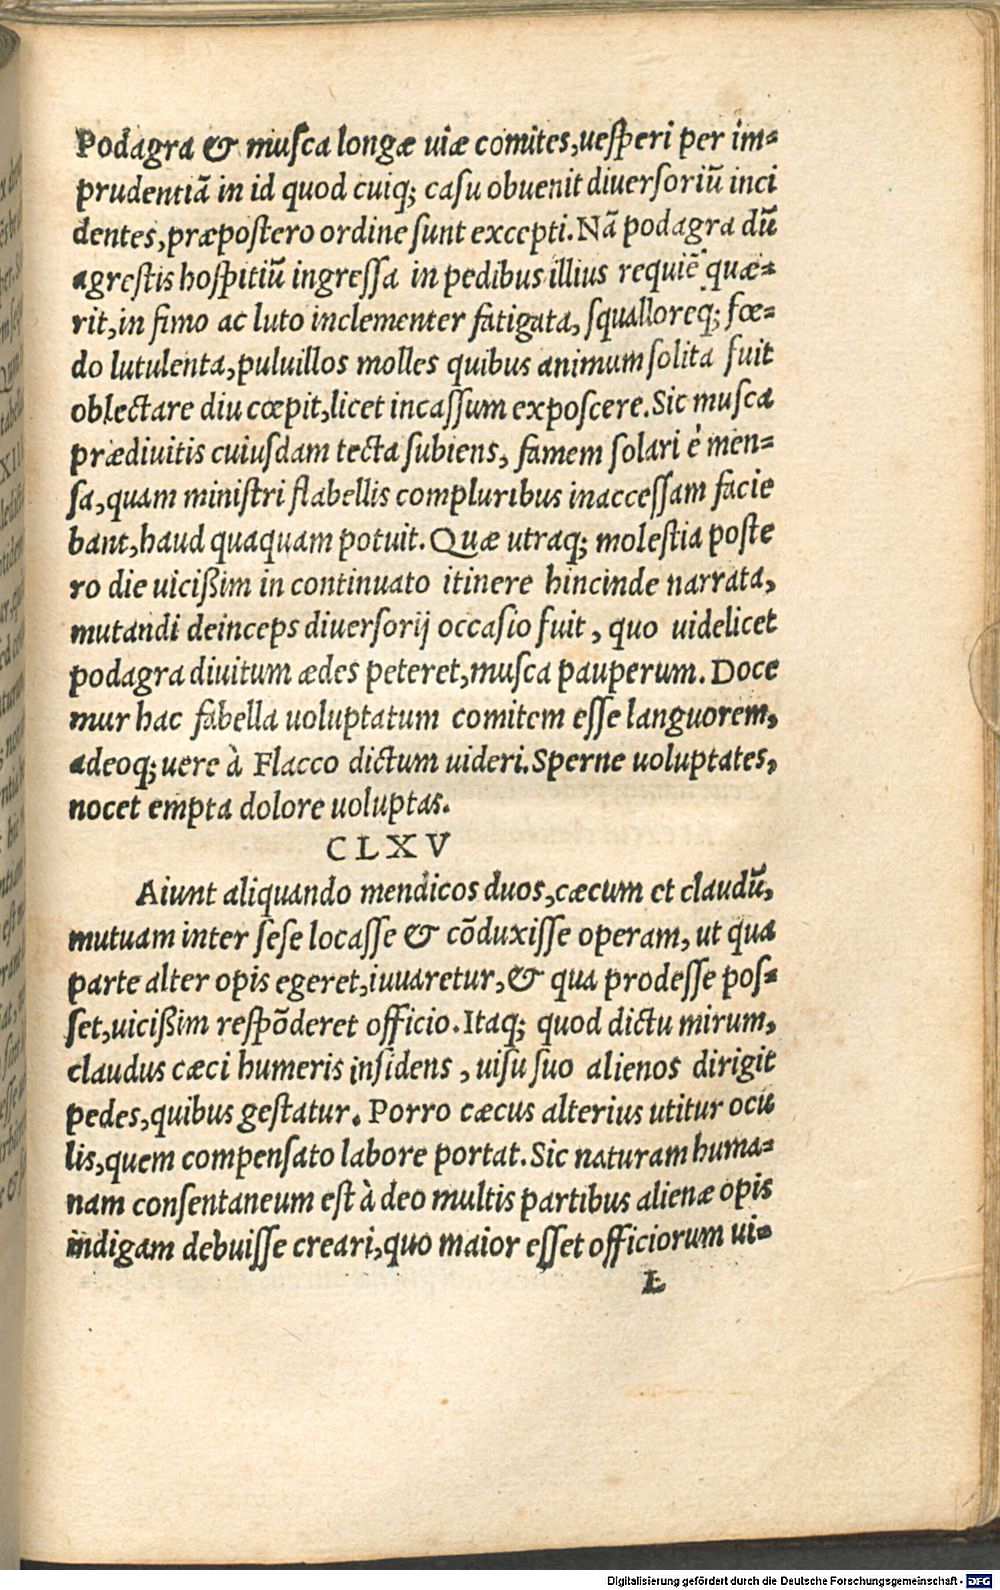 Podagra & muſca longæ uiæ comites,ueſperi per im-
prudentiã in id quod cuiq; caſu obuenit diuerſoriũ inci
dentes,præpoſtero ordine ſunt excepti.Nã podagra dũ
agreſtis hoſpitiũ ingreſſa in pedibus illius requiẽ quæ-
rit,in fimo ac luto inclementer fatigata, ſqualloreq; fœ-
do lutulenta,puluillos molles quibus animum ſolita fuit
oblectare diu cœpit,licet incaſſum expoſcere.Sic muſca
prædiuitis cuiuſdam tecta ſubiens, famem ſolari è men-
ſa,quam miniſtri flabellis compluribus inacceſſam facie
bant,haud quaquam potuit. Quæ utraq; moleſtia poſte
ro die uicißim in continuato itinere hincinde narrata,
mutandi deinceps diuerſorij occaſio fuit , quo uidelicet
podagra diuitum ædes peteret,muſca pauperum. Doce
mur hac fabella uoluptatum comitem eſſe languorem,
adeoq; uere à Flacco dictum uideri.Sperne uoluptates,
nocet empta dolore uoluptas.
CLXV
Aiunt aliquando mendicos duos,cæcum et claudũ,
mutuam inter ſeſe locaſſe & cõduxiſſe operam, ut qua
parte alter opis egeret,iuuaretur,& qua prodeſſe poſ-
ſet,uicißim reſpõderet officio.Itaq; quod dictu mirum,
claudus cæci humeris inſidens , uiſu ſuo alienos dirigit
pedes,quibus geſtatur. Porro cæcus alterius utitur ocu
lis,quem compenſato labore portat.Sic naturam huma-
nam conſentaneum eſt à deo multis partibus alienæ opis
indigam debuiſſe creari,quo maior eſſet officiorum ui-
L
Digitalisierung gefördert durch die Deutsche Forschungsgemeinschaft - DFG